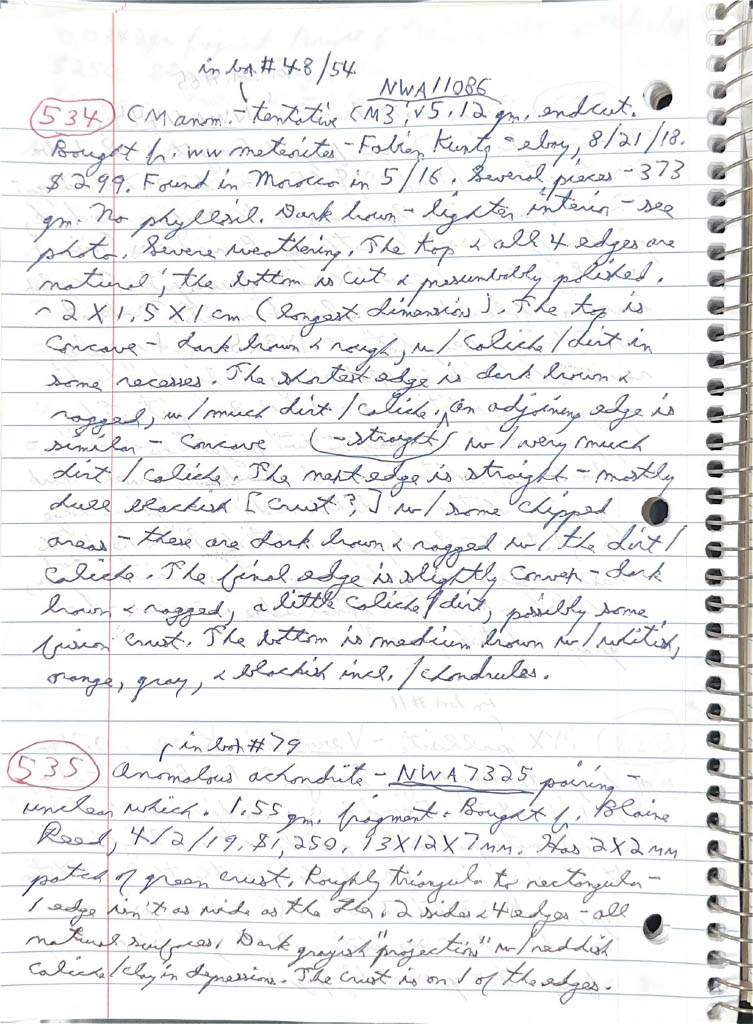 in box #48/54
NWA11086
534 CM anom. - tentative CM3; 5.12 gm. endcut.
Bought fr. ww meteorites - Fabien Kuntz - ebay, 8/21/18.
$299. Found in Morocco in 5/16. Several pieces - 373
gm. No phyllosil. Dark brown - lighter interior - see
photo. Severe weathering. The top & all 4 edges are
natural; the bottom is cut & presumbably polished.
~ 2 X 1.5 X 1 cm (longest dimensions). The top is
concave - dark brown & rough, w/ caliche/dirt in
some recesses. The shortest edge is dark brown &
ragged, w/ much dirt/caliche. An adjoining edge is
similar - concave (-straight) w/ very much
dirt/caliche. The next edge is straight - mostly
dull blackish [crust?] w/ some chipped
areas - these are dark brown & ragged w/ the dirt/
caliche. The final edge is slightly convex - dark
brown & ragged, a little caliche/dirt, possibly some
fusion crust. The bottom is medium brown w/ whitish,
orange, gray, & blackish incl./chondrules.
in box #11
in box #79
535 Anomalous achondrite - NWA7325 pairing -
unclear which. 1.55 gm. fragment. Bought fr. Blaine
Reed, 4/2/19, $1,250. 13X12X7mm. Has 2X2mm
patch of green crust. Roughly triangular to rectangular -
1 edge isn't as wide as the other. 2 sides & 4 edges - all
natural surfaces. Dark grayish "projections" w/ reddish
caliche/clay in depressions. The crust is on 1 of the edges.